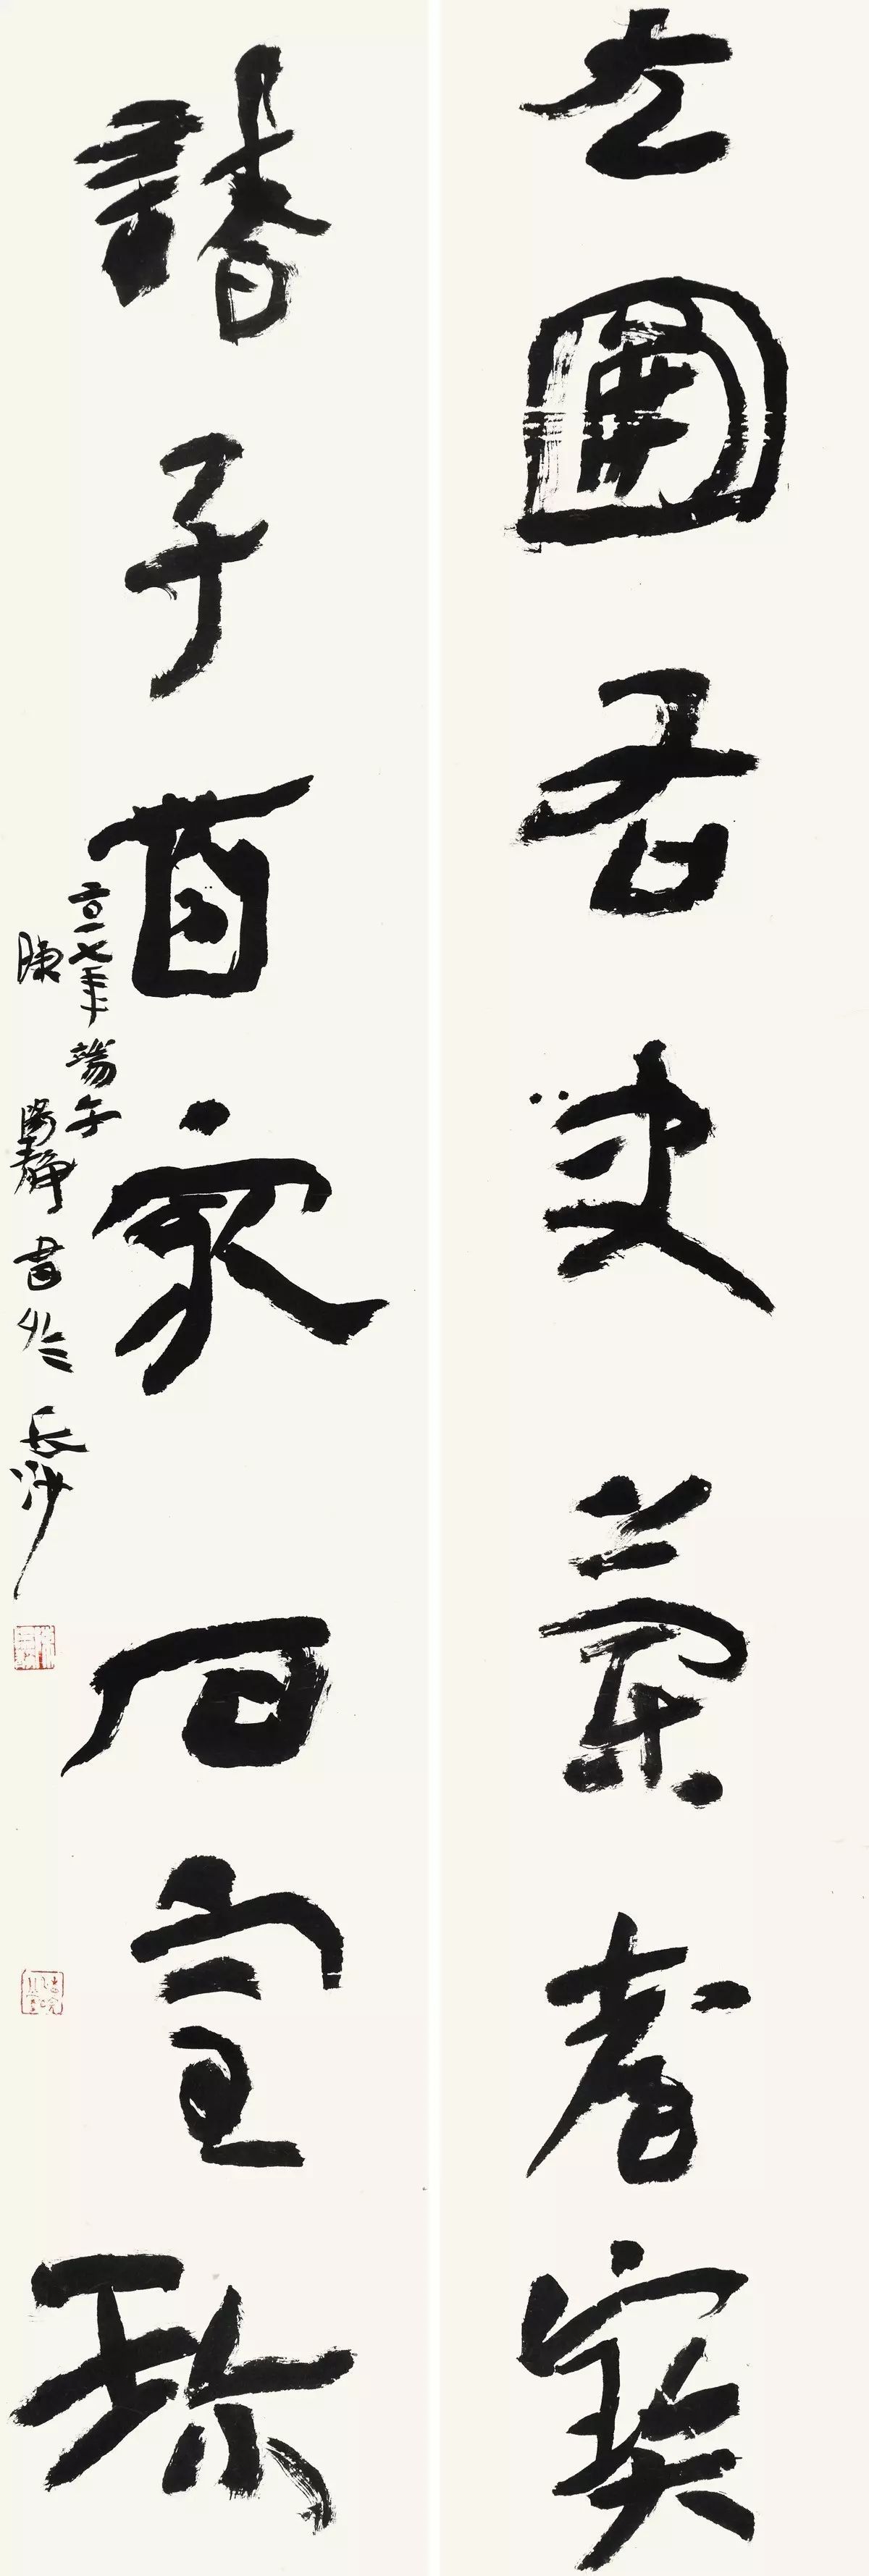 左圖右史蘭寶
諸子百家石室珍
二〇一七年端午
陳陽靜書於長沙